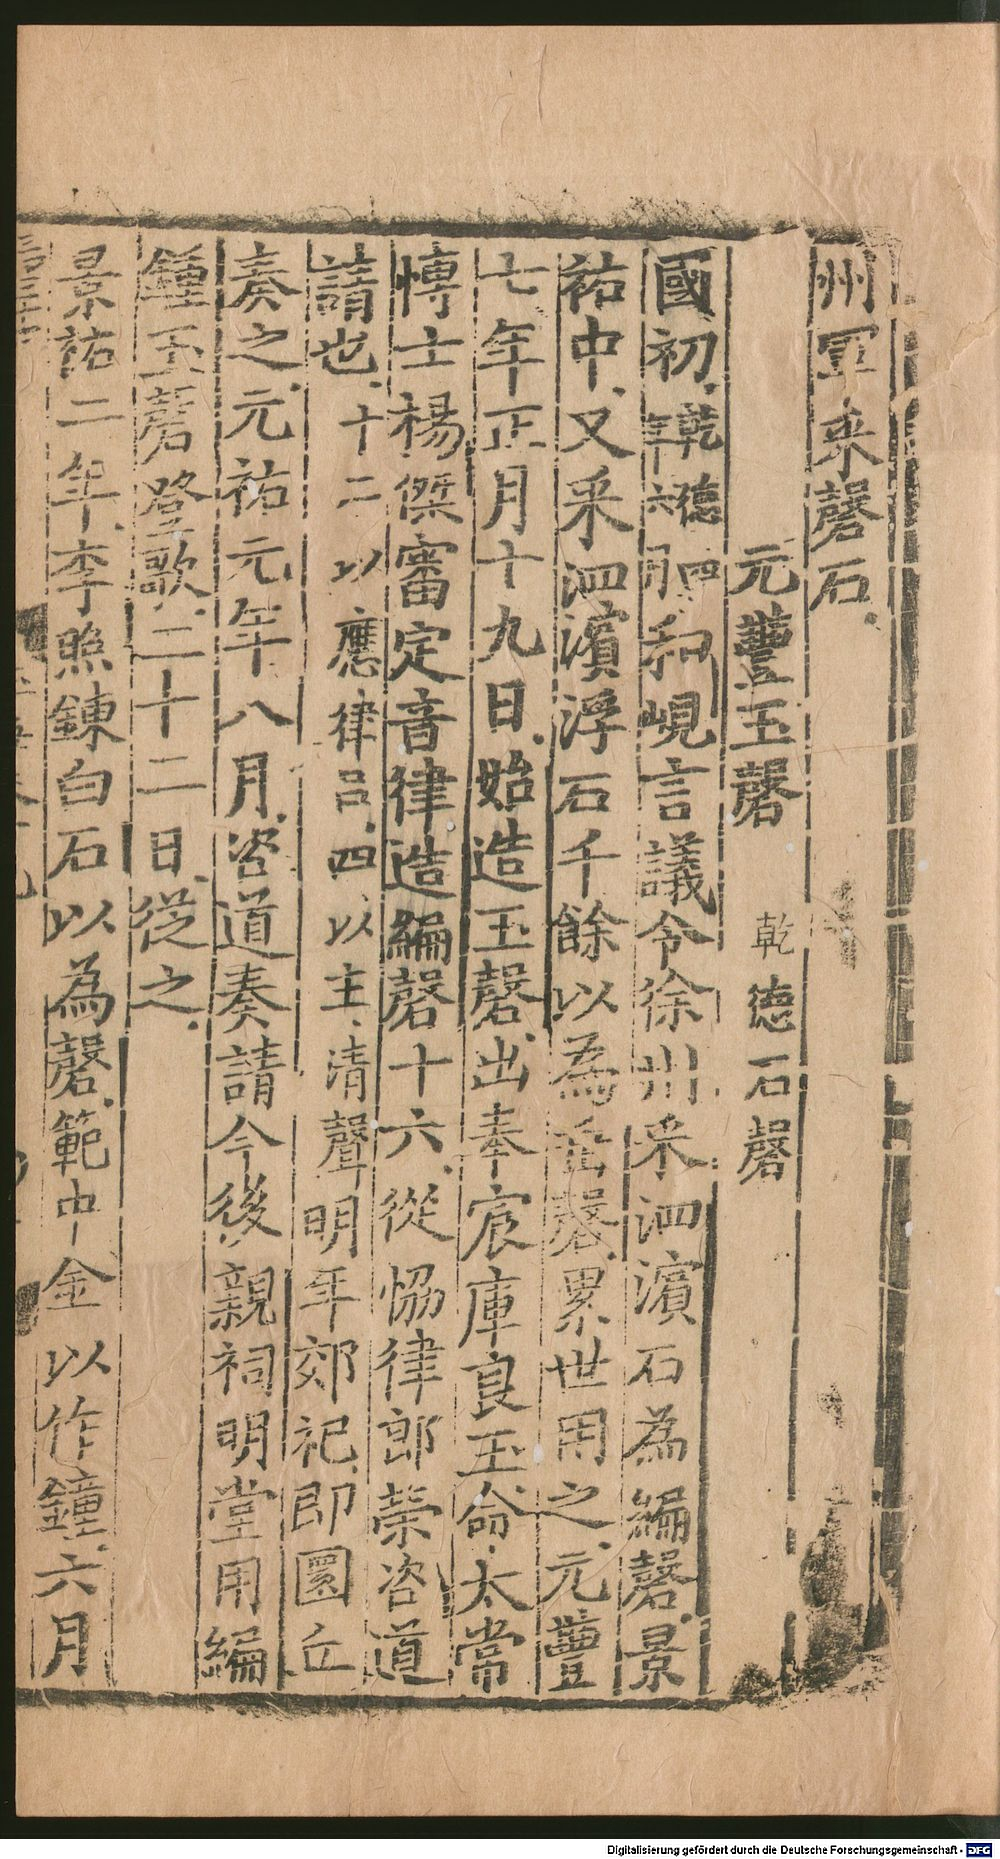 州軍来磬石
元豐玉磬 乾德石磬
國初乾德四年六月和峴言議令徐州采泗濱石為編磬景
祐中又采泗濱浮石千餘以為磬累世用之元豐
七年正月十九日始造玉磬出奉宸庫良玉命太常
博士楊傑審定音律造編磬十六從恊律郎榮咨道
請也十二以應律呂四以主清聲明年郊祀即圜丘
奏之元祐元年八月咨道奏請今後親祠明堂用編
鍾玉磬登歌二十二日從之
景祐二年李照鍊白石以為磬範中金以作鐘六月
Digitalisierung gefördert durch die Deutsche Forschungsgemeinschaft - DFG